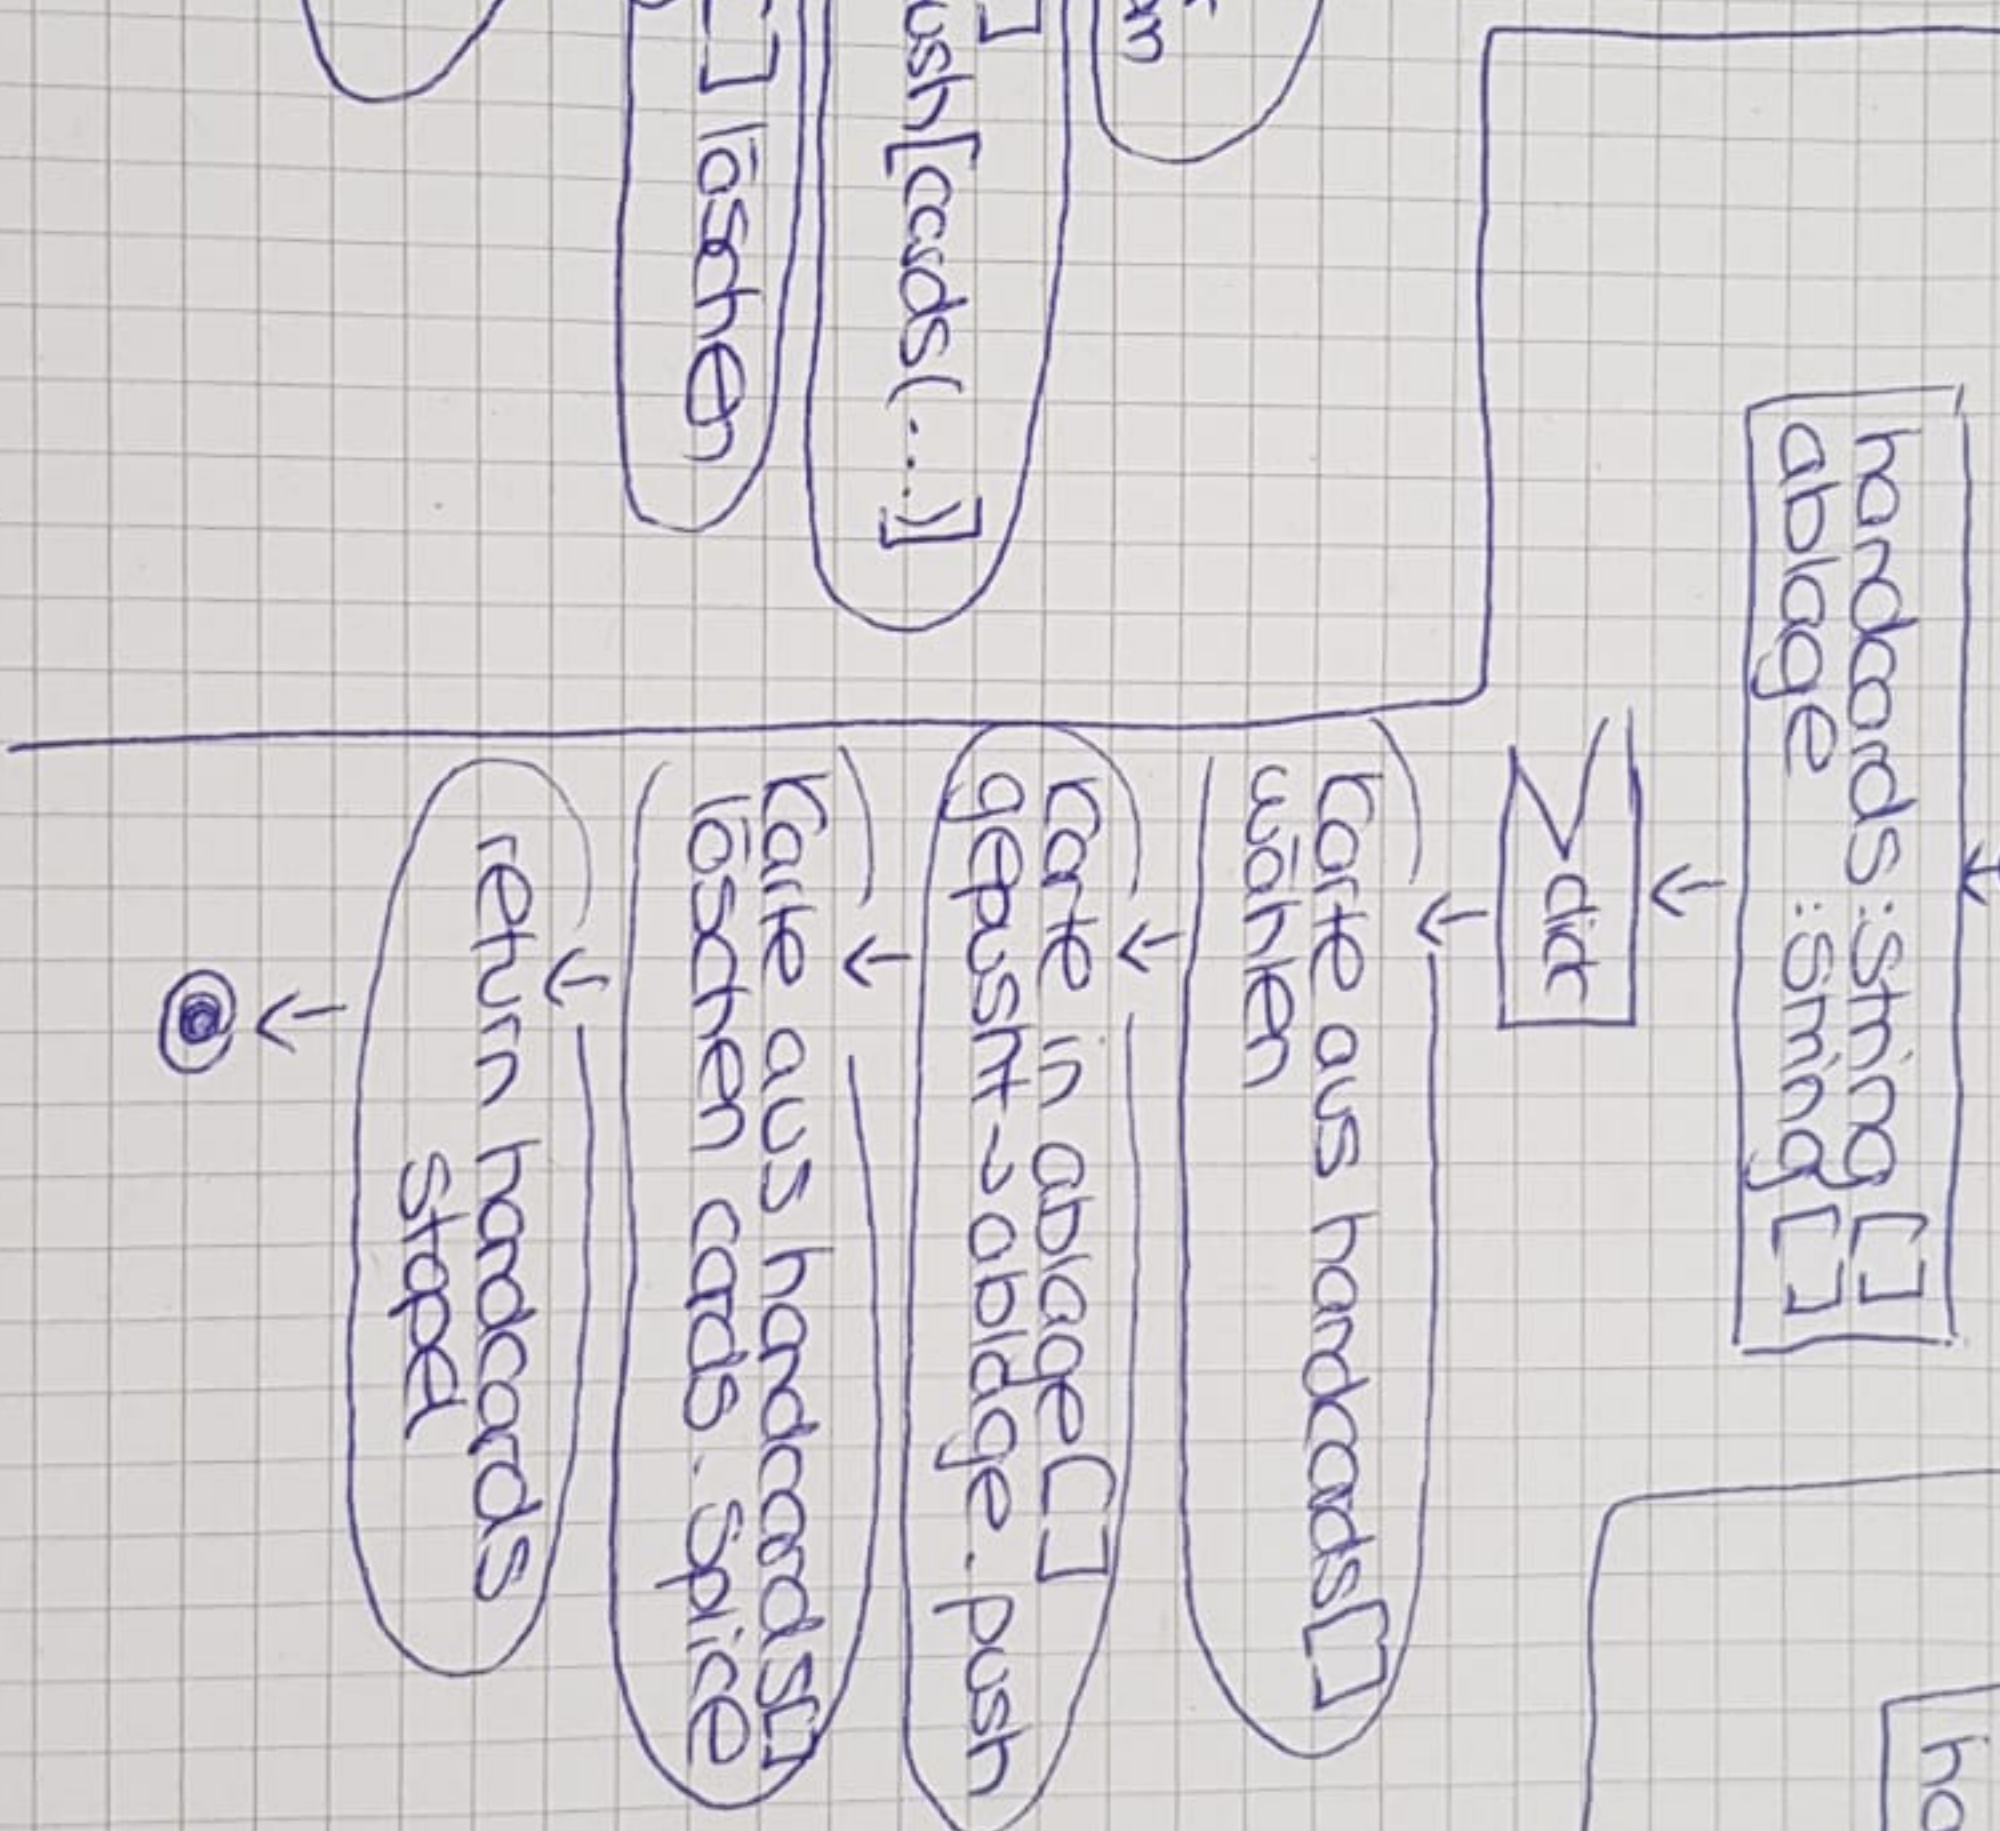 handcards :String []
ablage :String []
click
Karte aus handcards[]
wählen
Karte in ablage[]
gepusht→ablage.push
Karte aus handcards[]
löschen cards.Splice
return handcards
Stapel
ush[cards(....)]
[] löschen